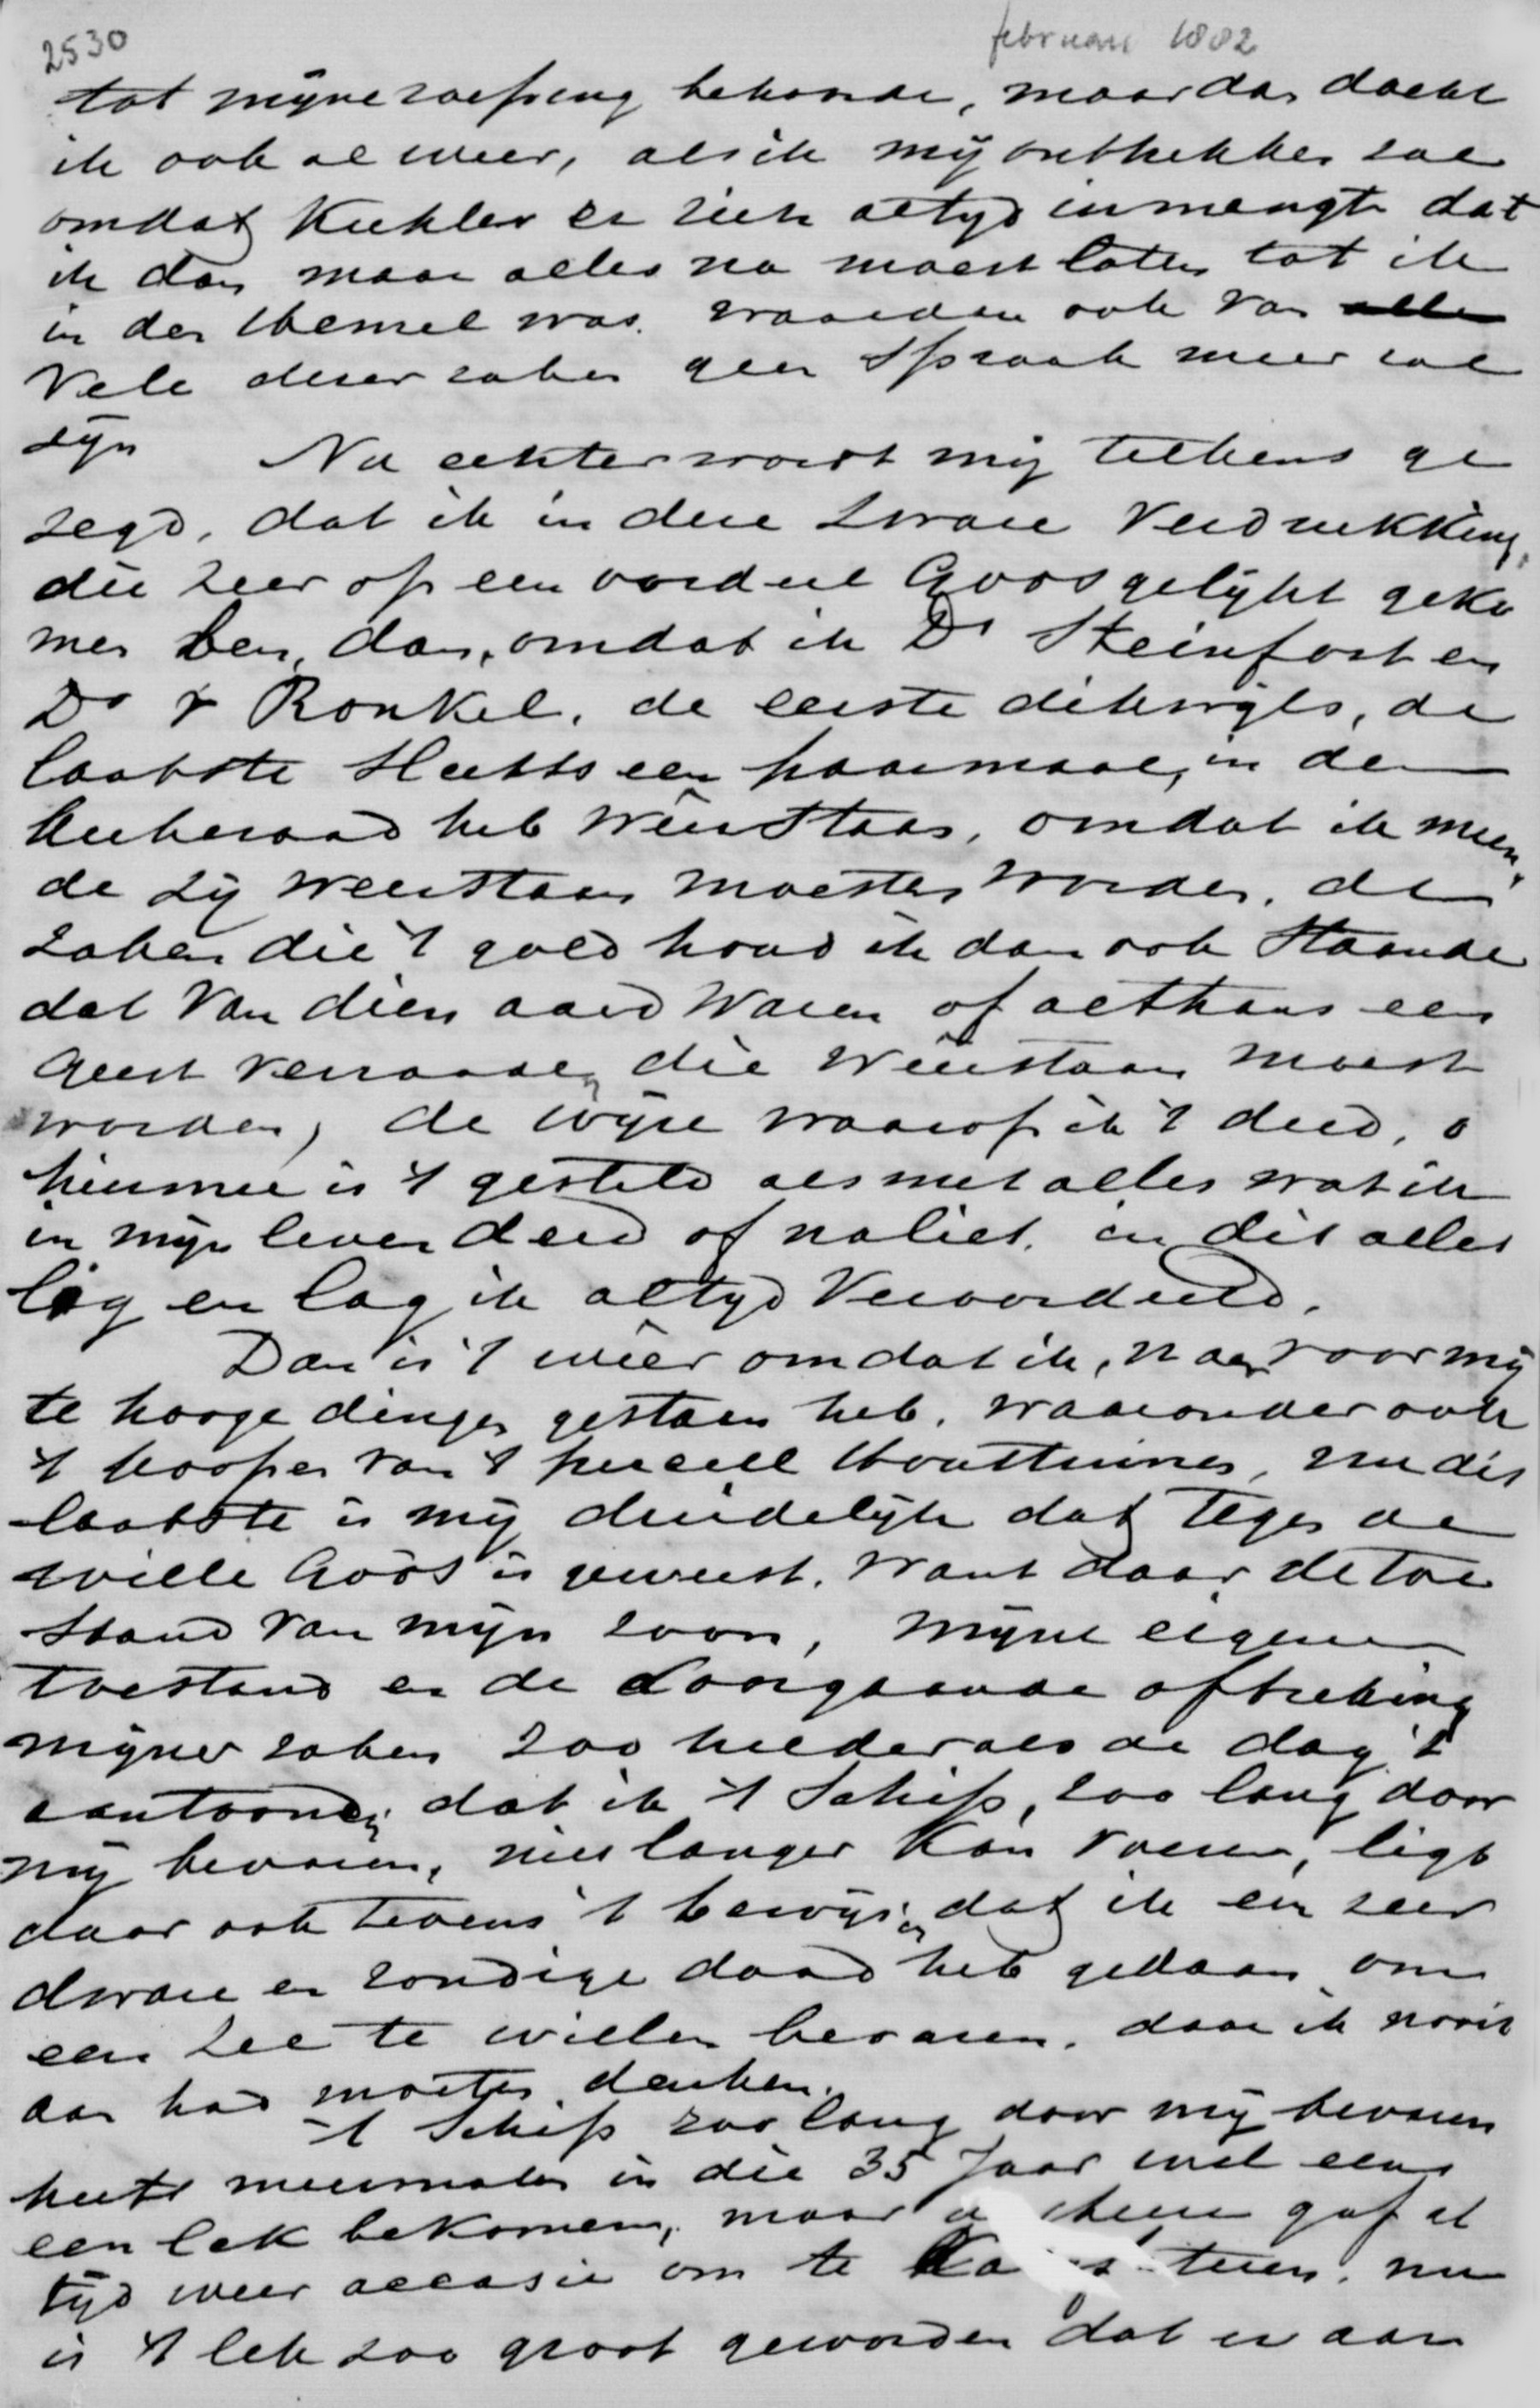 2530
februari 1882
tot mijne roeping behoorde, maar dan dacht
ik ook al weer, als ik mij onttrekken zal
omdat Kuhler er zich altijd inmengt dat
ik dan maar alles na moest laten tot ik
in den Hemel was. waarden ook van alle
Vele dezer zaken geen Spraak meer zal
zijn
Nu echter word mij telkens ge
zegd, dat ik in deze zware Verdrukking,
die zeer op een oordeel Gods gelijkt geko
men ben, dan, omdat ik Ds Steinfort en
Ds v Ronkel, de eerste dikwijls, de
laatste Slechts een paarmaal, in den
kerkeraad heb weerstaan, omdat ik meen,
de zij weerstaan moesten worden, de
zaken die 't gold houd ik dan ook Staande
dat Van dien aard Waren of althans een
Geest verraade, die weerstaan moest
worden, de wijze waarop ik 't deed, o
hiermee is 't gesteld als met alles wat ik
in mijn leven deed of naliet. in dit alles
lig en lag ik altijd Veroordeeld.
Dan is 't wéér omdat ik, naar voor mij
te hooge dingen gestaan heb. waaronder ook
't koopen van 't perceel Houttuinen, nu dit
laatste is mij duidelijk dat tegen de
wille Gods is geweest. Want daar de toe
stand Van mijn zoon, mijne eigene
toestand en de doorgaande aftrekking
mijner zaken zoo helder als de dag 't
aantoonen, dat ik 't Schip, zoo lang door
mij bevaren, niet langer Kan voeren, ligt
daar ook tevens 't bewijs in dat ik een zeer
dwaze en zondige daad heb gedaan om
een zee te willen bevaren. daar ik nooit
aan had moeten denken.
't Schip zoo lang door mij bevaren
heeft meermalen in die 35 Jaar wel eens
een lek bekomen, maar de Heere gaf al
tijd weer occasie om te nu
is 't lek zoo groot geworden dat er aan